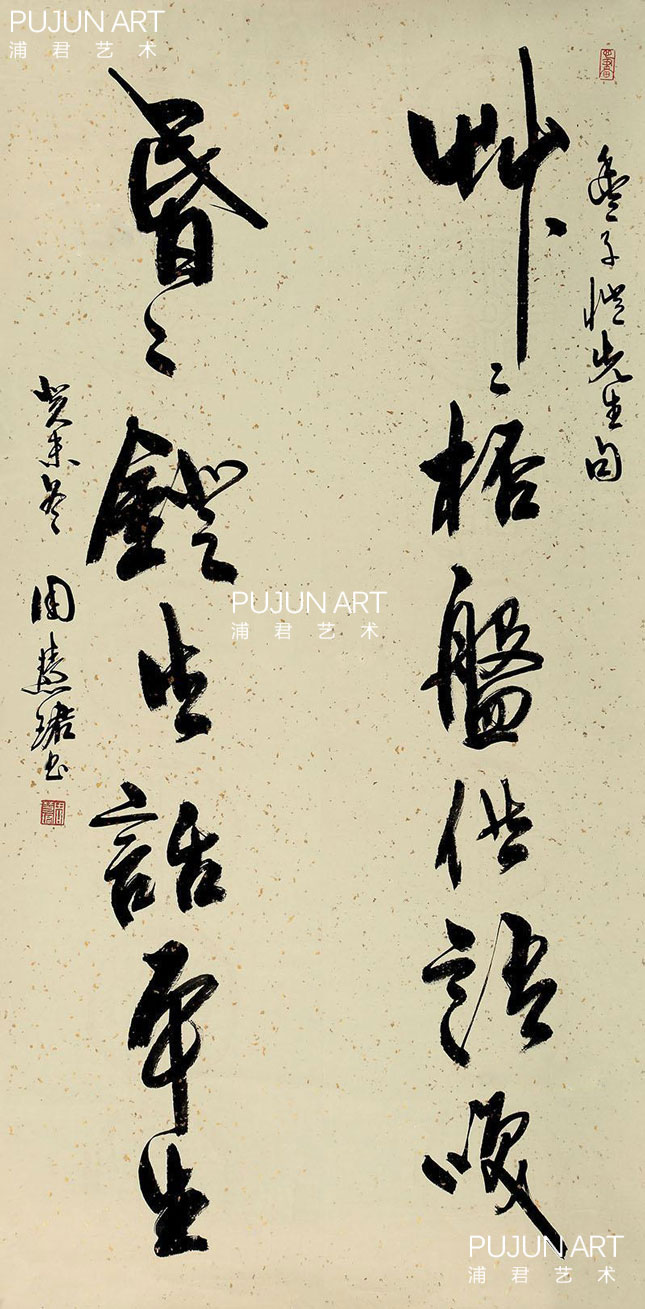 PUJUN ART
浦君艺术
豐子愷先生句
艸〻桮盤供語咲
昬〻鐙火話平生
癸未冬 周慧珺书
PUJUN ART
浦君艺术
PUJUN ART
浦君艺术